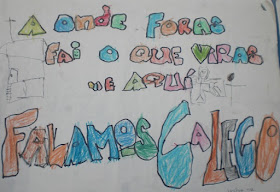 A ONDE FORAS
FAI O QUE VIRAS
E AQUÍ
FALAMOS GALEGO